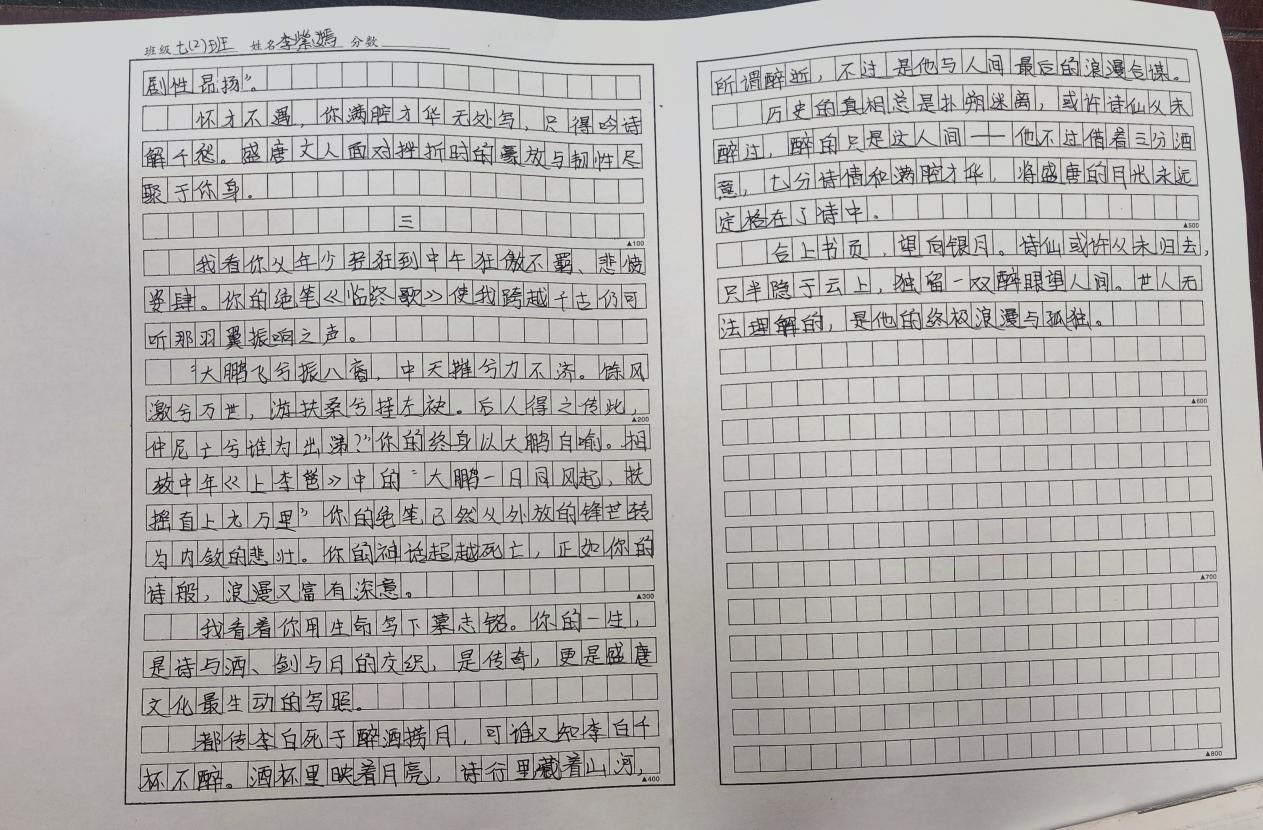 班级 七(2)班 姓名 李 嫣 分数
剧性昂扬”。
怀才不遇，你满腔才华无处写，只得吟诗
解千愁。盛唐文人面对挫折时的豪放与韧性尽
聚于你身。
三
▲100
我看你从年少轻狂到中午狂傲不羁、悲愤
姿肆。你的绝笔《临终歌》使我跨越千古仍可
听那羽翼振响之声。
“大鹏飞兮振八裔，中天摧兮力不济。馀风
激兮万世，游扶桑兮挂左袂。后人得之传此，
▲200
仲尼亡兮谁为出涕？”你的终身以大鹏自喻。相
较中年《上李邕》中的“大鹏一日同风起，扶
摇直上九万里”你的绝笔已然从外放的锋芒转
为内敛的悲壮。你的神话超越死亡，正如你的
诗般，浪漫又富有深意。
▲300
我看着你用生命写下墓志铭。你的一生，
是诗与酒、剑与月的交织，是传奇，更是盛唐
文化最生动的写照。
都传李白死于醉酒捞月，可谁又知李白千
杯不醉。酒杯里映着月亮，诗行里藏着山河，
▲400
所谓醉逝，不过是他与人间最后的浪漫合谋。
历史的真相总是扑朔迷离，或许诗仙从未
醉过，醉的只是这人间——他不过借着三分酒
意，七分诗情和满腔才华，将盛唐的月光永远
定格在了诗中。
▲500
合上书页，望向银月。诗仙或许从未归去，
只半隐于云上，独留一双醉眼望人间。世人无
法理解的，是他的终极浪漫与孤独。
▲600
▲700
▲800